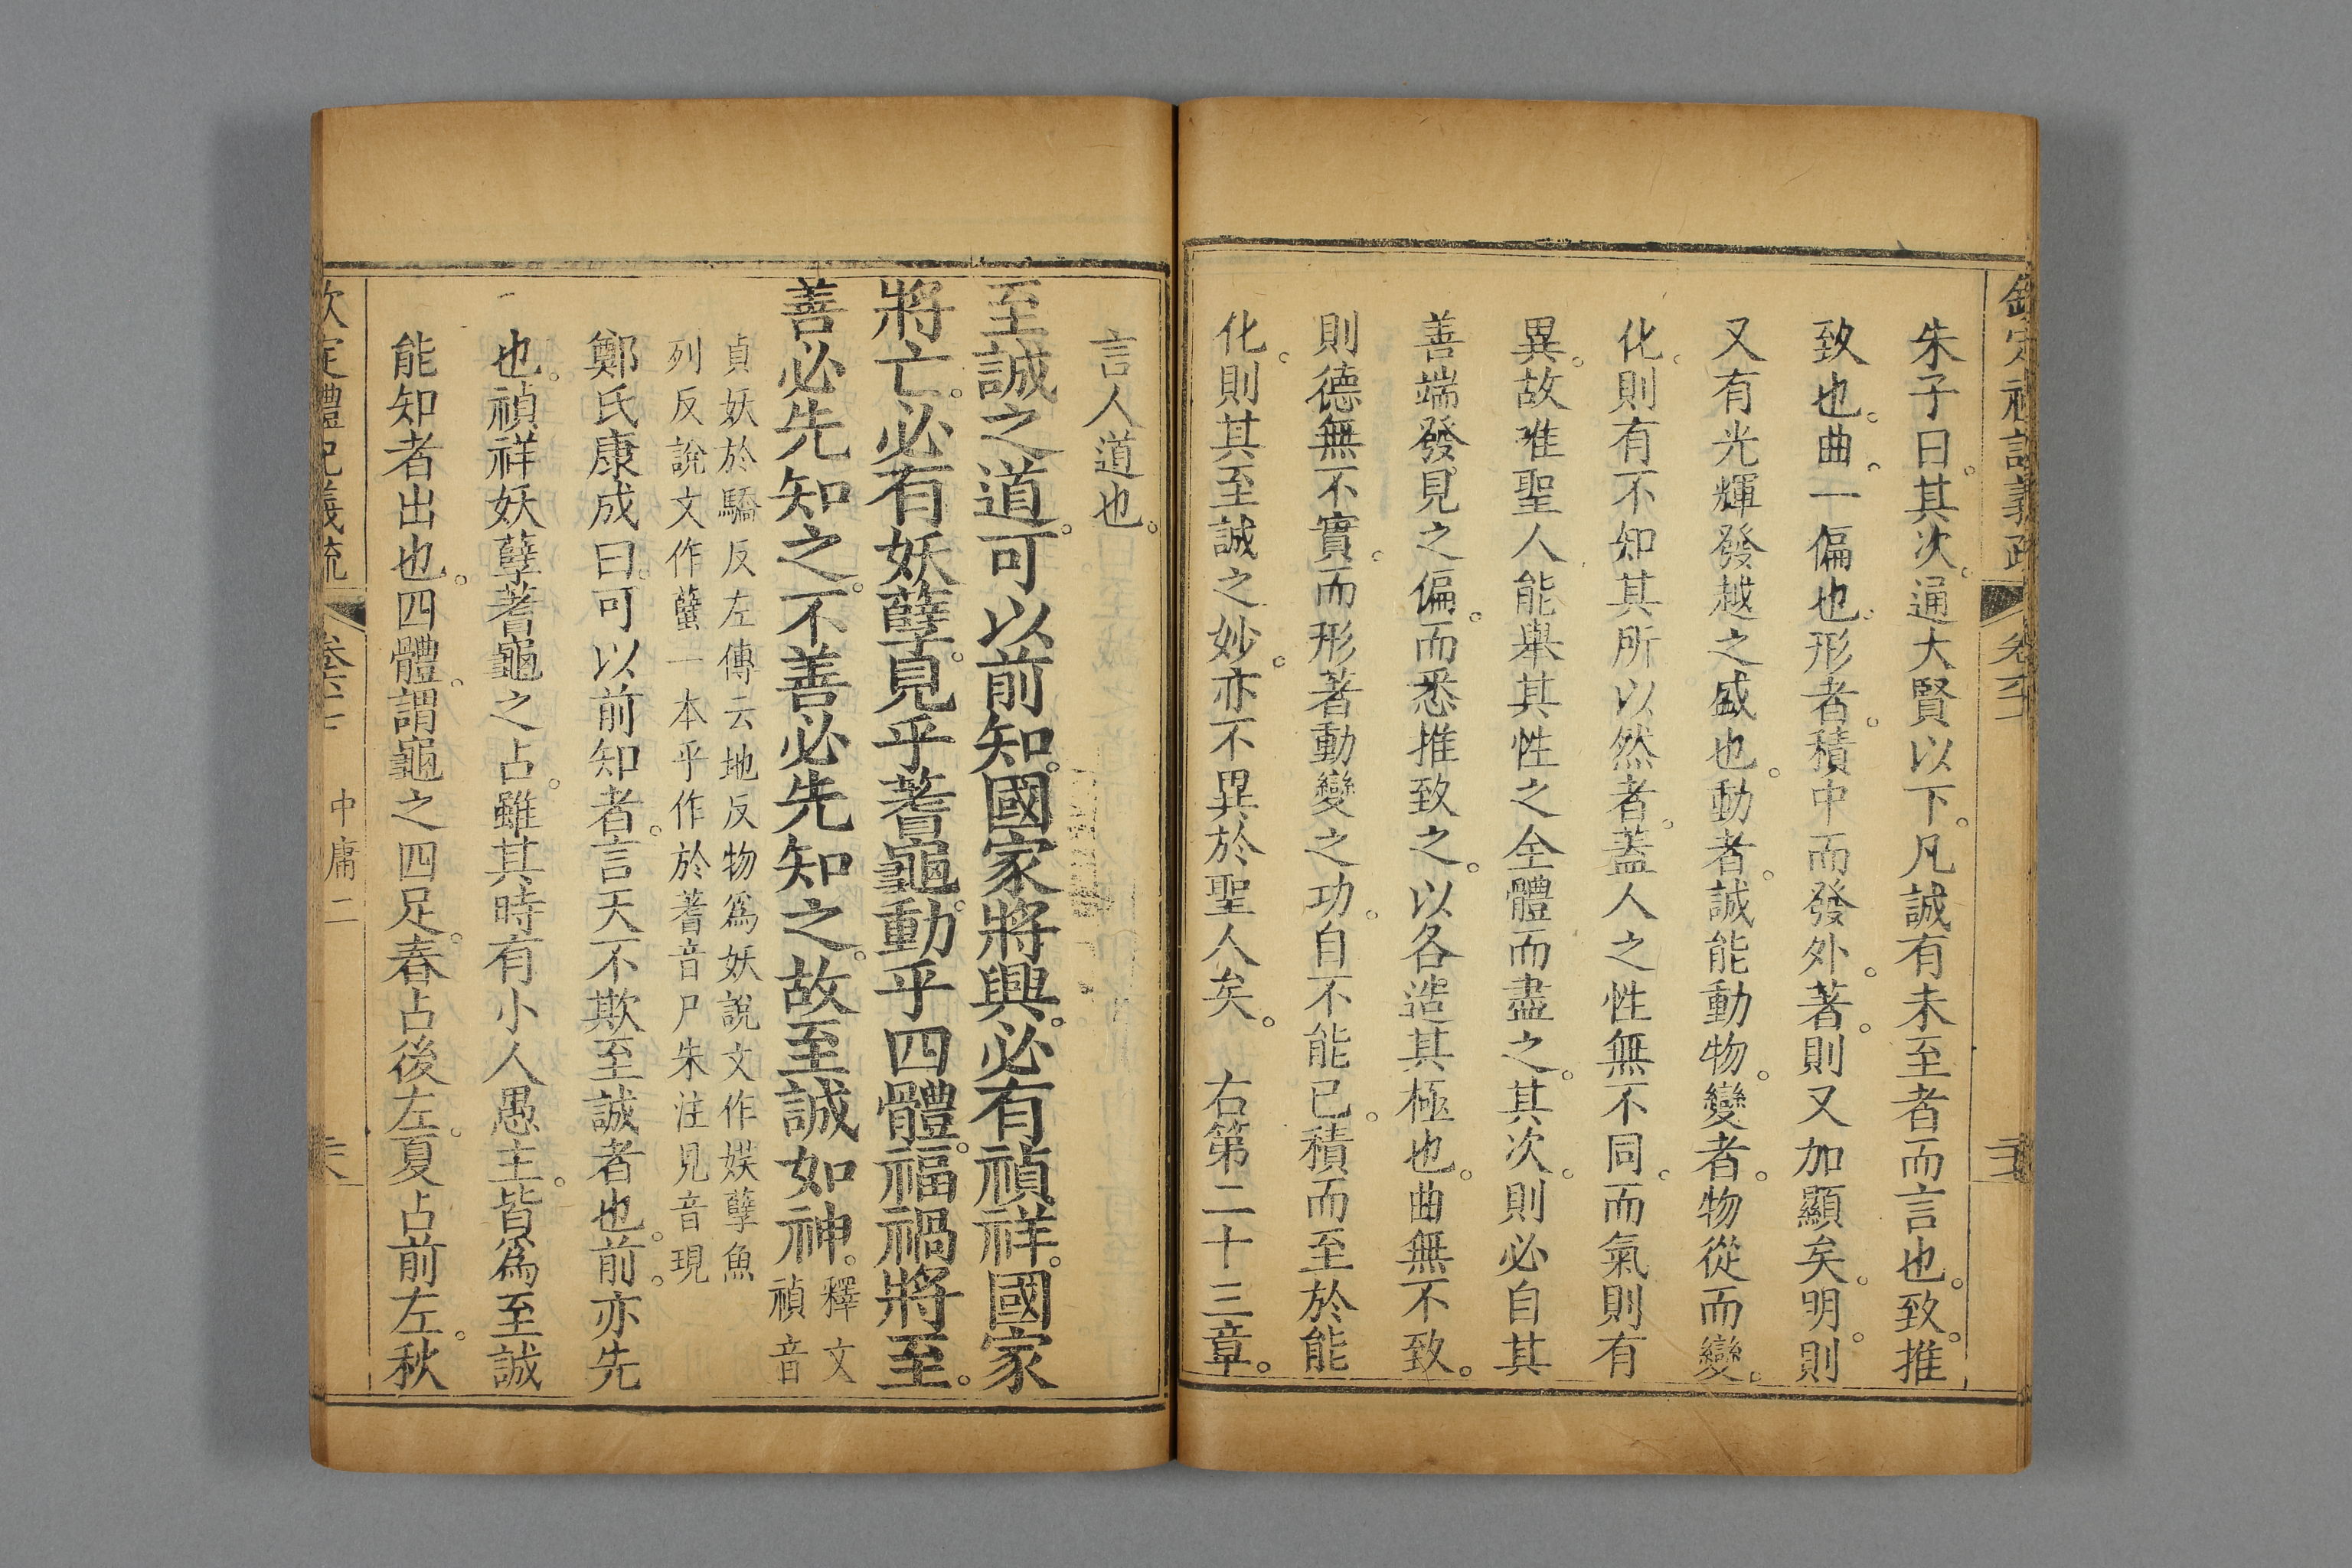 朱子曰。其次。通大賢以下。凡誠有未至者而言也。致。推
致也。曲。一偏也。形者。積中而發外。著。則又加顯矣。明。則
又有光輝發越之盛也。動者。誠能動物。變者。物從而變。
化。則有不知其所以然者。蓋人之性無不同。而氣則有
異。故惟聖人能舉其性之全體而盡之。其次。則必自其
善端發見之偏。而悉推致之。以各造其極也。曲無不致。
則德無不實。而形著動變之功。自不能已。積而至於能
化。則其至誠之妙。亦不異於聖人矣。 右第二十三章。
言人道也。
至誠之道。可以前知。國家將興。必有禎祥。國家
將亡。必有妖孽。見乎蓍龜。動乎四體。禍福將至。
善必先知之。不善必先知之。故至誠如神。釋文
禎音
貞妖於驕反左傳云地反物爲妖說文作䄏孽魚
列反說文作蠥一本乎作於蓍音尸朱注見音現
鄭氏康成曰。可以前知者。言天不欺至誠者也。前。亦先
也。禎祥妖孽蓍龜之占。雖其時有小人愚主。皆爲至誠
能知者出也。四體。謂龜之四足。春占後左。夏占前左。秋
欽定禮記義疏
中庸二